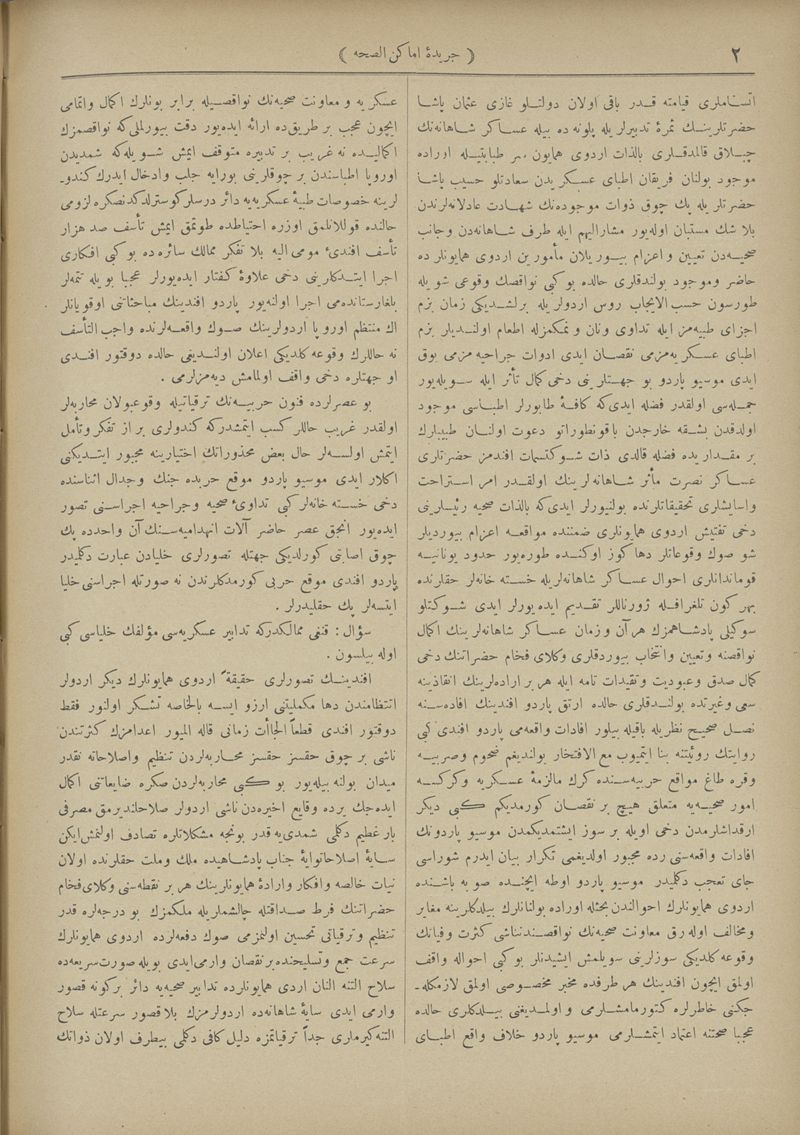 ٢
( جریدهٔ اماکن الصحه )
انتساملری قیامته قدر باقی اولان دولتلو غازی عثمان پاشا
حضرتلرینك ثمرهٔ تدبیرلریله پلونه ده بیله عساکر شاهانه‌نك
چیلاق قالمدقلری بالذات اردوی همایون سر طبابتیله اوراده
موجود بولنان فریقان اطبای عسکریدن سعادتلو حسیب پاشا
حضرتلریله پك چوق ذوات موجوده‌نك شهادت عادلانه‌لرندن
بلا شك مستبان اوله‌یور مشارالیهم ایله طرف شاهانه‌دن وجانب
صحیه‌دن تعیین و اعزام بیوریلان مأمورین اردوی همایونلر ده
حاضر وموجود بولندقلری حالده بو کبی نواقصك وقوعی شویله
طورسون حسب الایجاب روس اردولریله برلشدیکی زمان بزم
اجزای طبیه‌مز ایله تداوی ونان و نمکمزله اطعام اولندیلر بزم
اطبای عسکریه‌مزمی نقصان ایدی ادوات جراحیه مزمی یوق
ایدی موسیو پاردو بو جهتلرینی دخی کمال تأثر ایله سویله‌یور
جمله‌سی اولقدر فضله ایدی که کافهٔ طابورلر اطباسی موجود
اولدقدن بشقه خارجدن باقونطوراتو دعوت اولنان طبیبلرك
بر مقداریده فضله قالدی ذات شوکتسمات افندمز حضرتلری
عساکر نصرت مأثر شاهانه‌لرینك اولقدر امر استراحت
واسایشلری تحقیقاتلرنده بولنیورلر ایدی که بالذات صحیه رئیسلرینی
دخی تفتیش اردوی همایونلری ضمننده مواقعه اعزام بیوردیلر
شو صوك وقوعاتلر دها کوز اوکنده طوره‌یور حدود یونانیه
قوماندانلری احوال عساکر شاهانه‌لریله خسته خانه‌لر حقلرنده
بهر کون تلغرافله ژورناللر تقدیم ایده‌یورلر ایدی شوکتلو
سوکیلی پادشاهمزك هر آن و زمان عساکر شاهانه‌لرینك اکمال
نواقصنه وتعیین وانتخاب بیوردقلری وکلای فخام حضراتنك دخی
کمال صدق وعبودیت وتقیدات تامه ایله هر بر اراده‌لرینك انفاذینه
سعی وغیرتده بولندقلری حالده ارتق پاردو افندینك افاده‌سنه
نصل صحیح نظریله باقیله بیلور افادات واقعه‌می پاردو افندی کبی
روایتك روئیتنه بنا ایتمیوب مع الافتخار بولندیغم ضحوم وصربیه
وقره طاغ مواقع حربیه‌سنده کرك مالزمهٔ عسکریه وکرکسه
امور صحیه‌یه متعلق هیچ بر نقصان کورمدیکم کبی دیکر
ارقداشلرمدن دخی اویله بر سوز ایشتمدیکمدن موسیو پاردونك
افادات واقعه‌سنی رده مجبور اولدیغمی تکرار بیان ایدرم شوراسی
جای تعجب دکلیدر موسیو پاردو اوطه ایچنده صوبه باشنده
اردوی همایونلرك احوالندن بحثله اوراده بولنانلرك بیلدکلرینه مغایر
ومخالف اوله‌رق معاونت صحیه‌نك نواقصندن‌ناشی کثرت وفیاتك
وقوعه کلدیکی سوزلرینی سویلمش ایشیدنلر بو کبی احواله واقف
اولمق ایچون افندینك هر طرفده مخبر مخصوصی اولمق لازمکله‌ـ
جکنی خاطرلره کتورمامشلرمی و اولمدیغنی بیلدکلری حالده
عجبا صحتنه اعتماد ایتمشلرمی موسیو پاردو خلاف واقع اطبای
عسکریه و معاونت صحیه‌نك نواقصیله برابر بونلرك اکمال واتمامی
ایچون عجب بر طریق‌ده ارائه ایده‌یور دقت بیورلملی که نواقصمزك
اکمالیده نه غریب بر تدبیره متوقف ایمش شویله‌که شمدیدن
اوروپا اطباسندن بر چوقلرینی بورایه جلب وادخال ایدرك کندوـ
لرینه خصوصات طبیهٔ عسکریه‌یه دائر درسلر کوسترلدکدنصکره لزومی
حالنده قوللانلمق اوزره احتیاطده طوتمق ایمش تأسف صد هزار
تأسف افندیٔ مومی الیه بلا تفکر ممالك سائره ده بو کبی افکاری
اجرا ایتدکلرینی دخی علاوهٔ کفتار ایده‌یورلر عجبا بویله تتمه‌لر
بلغارستانده‌می اجرا اولنه‌یور پاردو افندینك مباحثاتنی اوقویانلر
اك منتظم اوروپا اردولرینك صوك واقعه‌لرنده واجب التأسف
نه حاللرك وقوعه کلدیکی اعلان اولندیغی حالده دوقتور افندی
او جهتلره دخی واقف اولمامش دیه‌مزلرمی .
بو عصرلرده فنون حربیه‌نك ترقیاتیله وقوعبولان محاربه‌لر
اولقدر غریب حاللر کسب ایتمشدرکه کندولری بر از تفکر وتأمل
ایتمش اولسه‌لر حال بعض محذوراتك اختیارینه مجبور ایتدیکنی
اکلار ایدی موسیو پاردو موقع حربده جنك وجدال اثناسنده
دخی خسته خانه‌لر کبی تداویٔ صحیه وجراحیه اجراسنی تصور
ایده‌یور انجق عصر حاضر آلات انهدامیه‌سنك آن واحدده پك
چوق اصابتی کورلدیکی جهتله تصورلری خلیادن عبارت دکلیدر
پاردو افندی موقع حربی کورمدکلرندن نه صورتله اجراسنی خلیا
ایتسه‌لر پك حقلیدرلر .
سؤال : قنغی ممالکدرکه تدابیر عسکریه‌سی مؤلفك خلیاسی کبی
اوله بیلسون .
افندینك تصورلری حقیقةً اردوی همایونلرك دیکر اردولر
انتظامندن دها مکملیتنی ارزو ایسه بالخاصه تشکر اولنور فقط
دوقتور افندی قطعاً الجاآت زمانی قاله المیور اعدامزك کثرتندن
ناشی بر چوق حقسز حقسز محاربه‌لردن تنظیم واصلاحاته نقدر
میدان بولنه بیله‌یور بو کبی محاربه‌لردن صکره ضایعاتنی اکمال
ایده‌جك یرده وقایع اخیره‌دن ناشی اردولر صلاحلندیرمق مصرفی
بار عظیم دکلمی شمدی‌یه قدر بونجه مشکلاتلره تصادف اولنمش‌ایکن
سایهٔ اصلاحاتوایهٔ جناب پادشاهیده ملك وملت حقلرنده اولان
نیات خالصه وافکار وارادهٔ همایونلرینك هر بر نقطه‌سنی وکلای فخام
حضراتنك فرط صداقتله چالشمه‌لریله ملکمزك بو درجه‌لره قدر
تنظیم وترقیاتی تحسین اولنمزمی صوك دفعه‌لرده اردوی همایونلرك
سرعت جمع وتسلیحنده بر نقصان وارمی ایدی بویله صورت سریعه‌ده
سلاح التنه النان اردی همایونلرده تدابیر صحیه‌یه دائر برکونه قصور
وارمی ایدی سایهٔ شاهانه‌ده اردولرمزك بلا قصور سرعتله سلاح
التنه کیرماری جداً ترقیاتمزه دلیل کافی دکلمی بیطرف اولان ذواتك